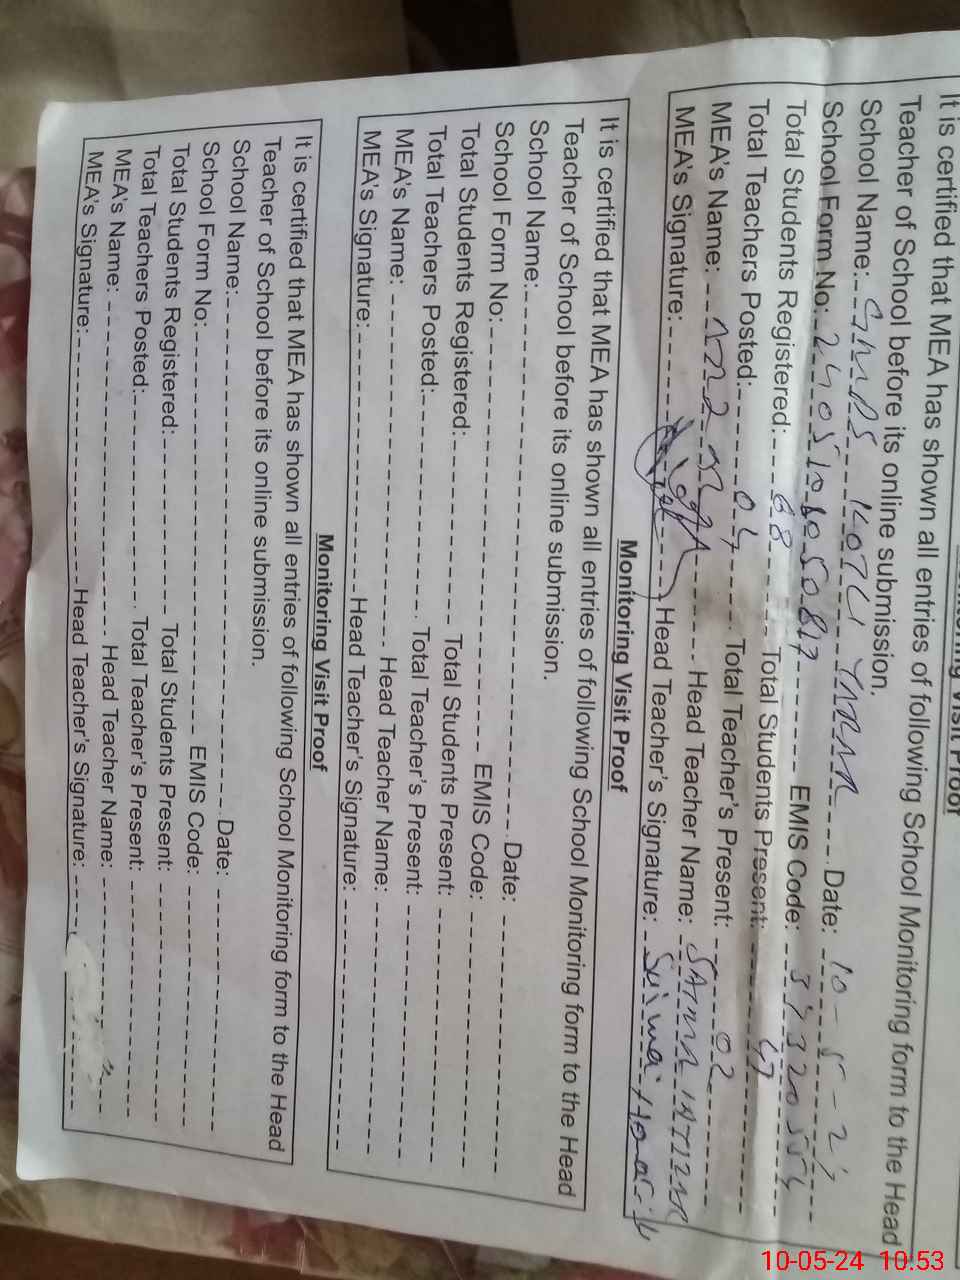 Monitoring Visit Proof
It is certified that MEA has shown all entries of following School Monitoring form to the Head
Teacher of School before its online submission.
School Name: GMPS KOTLI Date: 10-5-24
School Form No: EMIS Code:
Total Students Registered: 68 Total Students Present: 47
Total Teachers Posted: 04 Total Teacher's Present: 02
MEA's Name: Head Teacher Name: SAIMA
MEA's Signature: Head Teacher's Signature: Saima
Monitoring Visit Proof
It is certified that MEA has shown all entries of following School Monitoring form to the Head
Teacher of School before its online submission.
School Name: Date:
School Form No: EMIS Code:
Total Students Registered: Total Students Present:
Total Teachers Posted: Total Teacher's Present:
MEA's Name: Head Teacher Name:
MEA's Signature: Head Teacher's Signature:
Monitoring Visit Proof
It is certified that MEA has shown all entries of following School Monitoring form to the Head
Teacher of School before its online submission.
School Name: Date:
School Form No: EMIS Code:
Total Students Registered: Total Students Present:
Total Teachers Posted: Total Teacher's Present:
MEA's Name: Head Teacher Name:
MEA's Signature: Head Teacher's Signature:
10-05-24 10:53